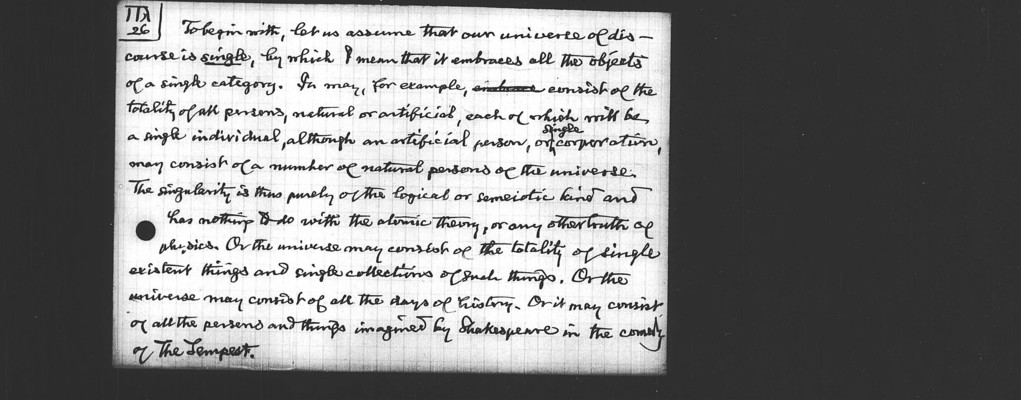 ITλ
26
To begin with, let us assume that our universe of dis-
course is single, by which I mean that it embraces all the objects
of a single category. It may, for example, embrace consist of the
totality of all persons, natural or artificial, each of which will be
single
a single individual, although an artificial person, or corporation,
may consist of a number of natural persons of the universe.
The singularity is thus purely of the logical or semeiotic kind and
has nothing to do with the atomic theory, or any other truth of
physics. Or the universe may consist of the totality of single
existent things and single collections of such things. Or the
universe may consist of all the days of history. Or it may consist
of all the persons and things imagined by Shakespeare in the comedy
of The Tempest.